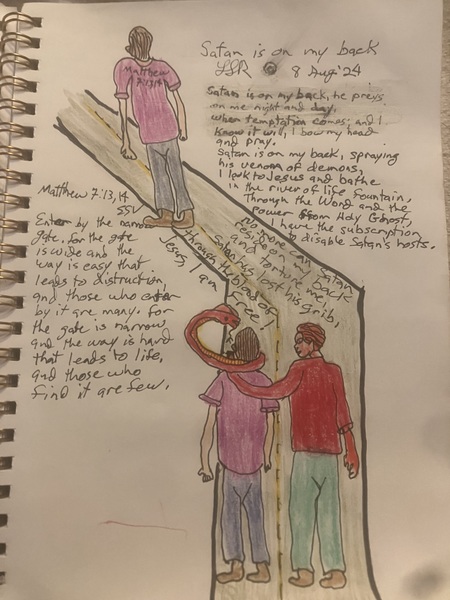 Satan is on my back
LSR © 8 Aug '24
Satan is on my back, he preys
on me night and day,
when temptation comes; and I
know it will, I bow my head
and pray.
Satan is on my back, spraying
his venom of demons,
I look to Jesus and bathe
in the river of life fountain,
Through the Word and the
power from Holy Ghost,
I have the subscription
to disable Satan's hosts.
No more can Satan
reside on my back
and torture me,
Satan has lost his grib,
through the blood of
Jesus, I am
free!
Matthew
7:13,14
Matthew 7:13,14
Enter by the narrow
gate. for the gate
is wide and the
way is easy that
leads to distruction,
and those who enter
by it are many. for
the gate is narrow
and the way is hard
that leads to life,
and those who
find it are few.